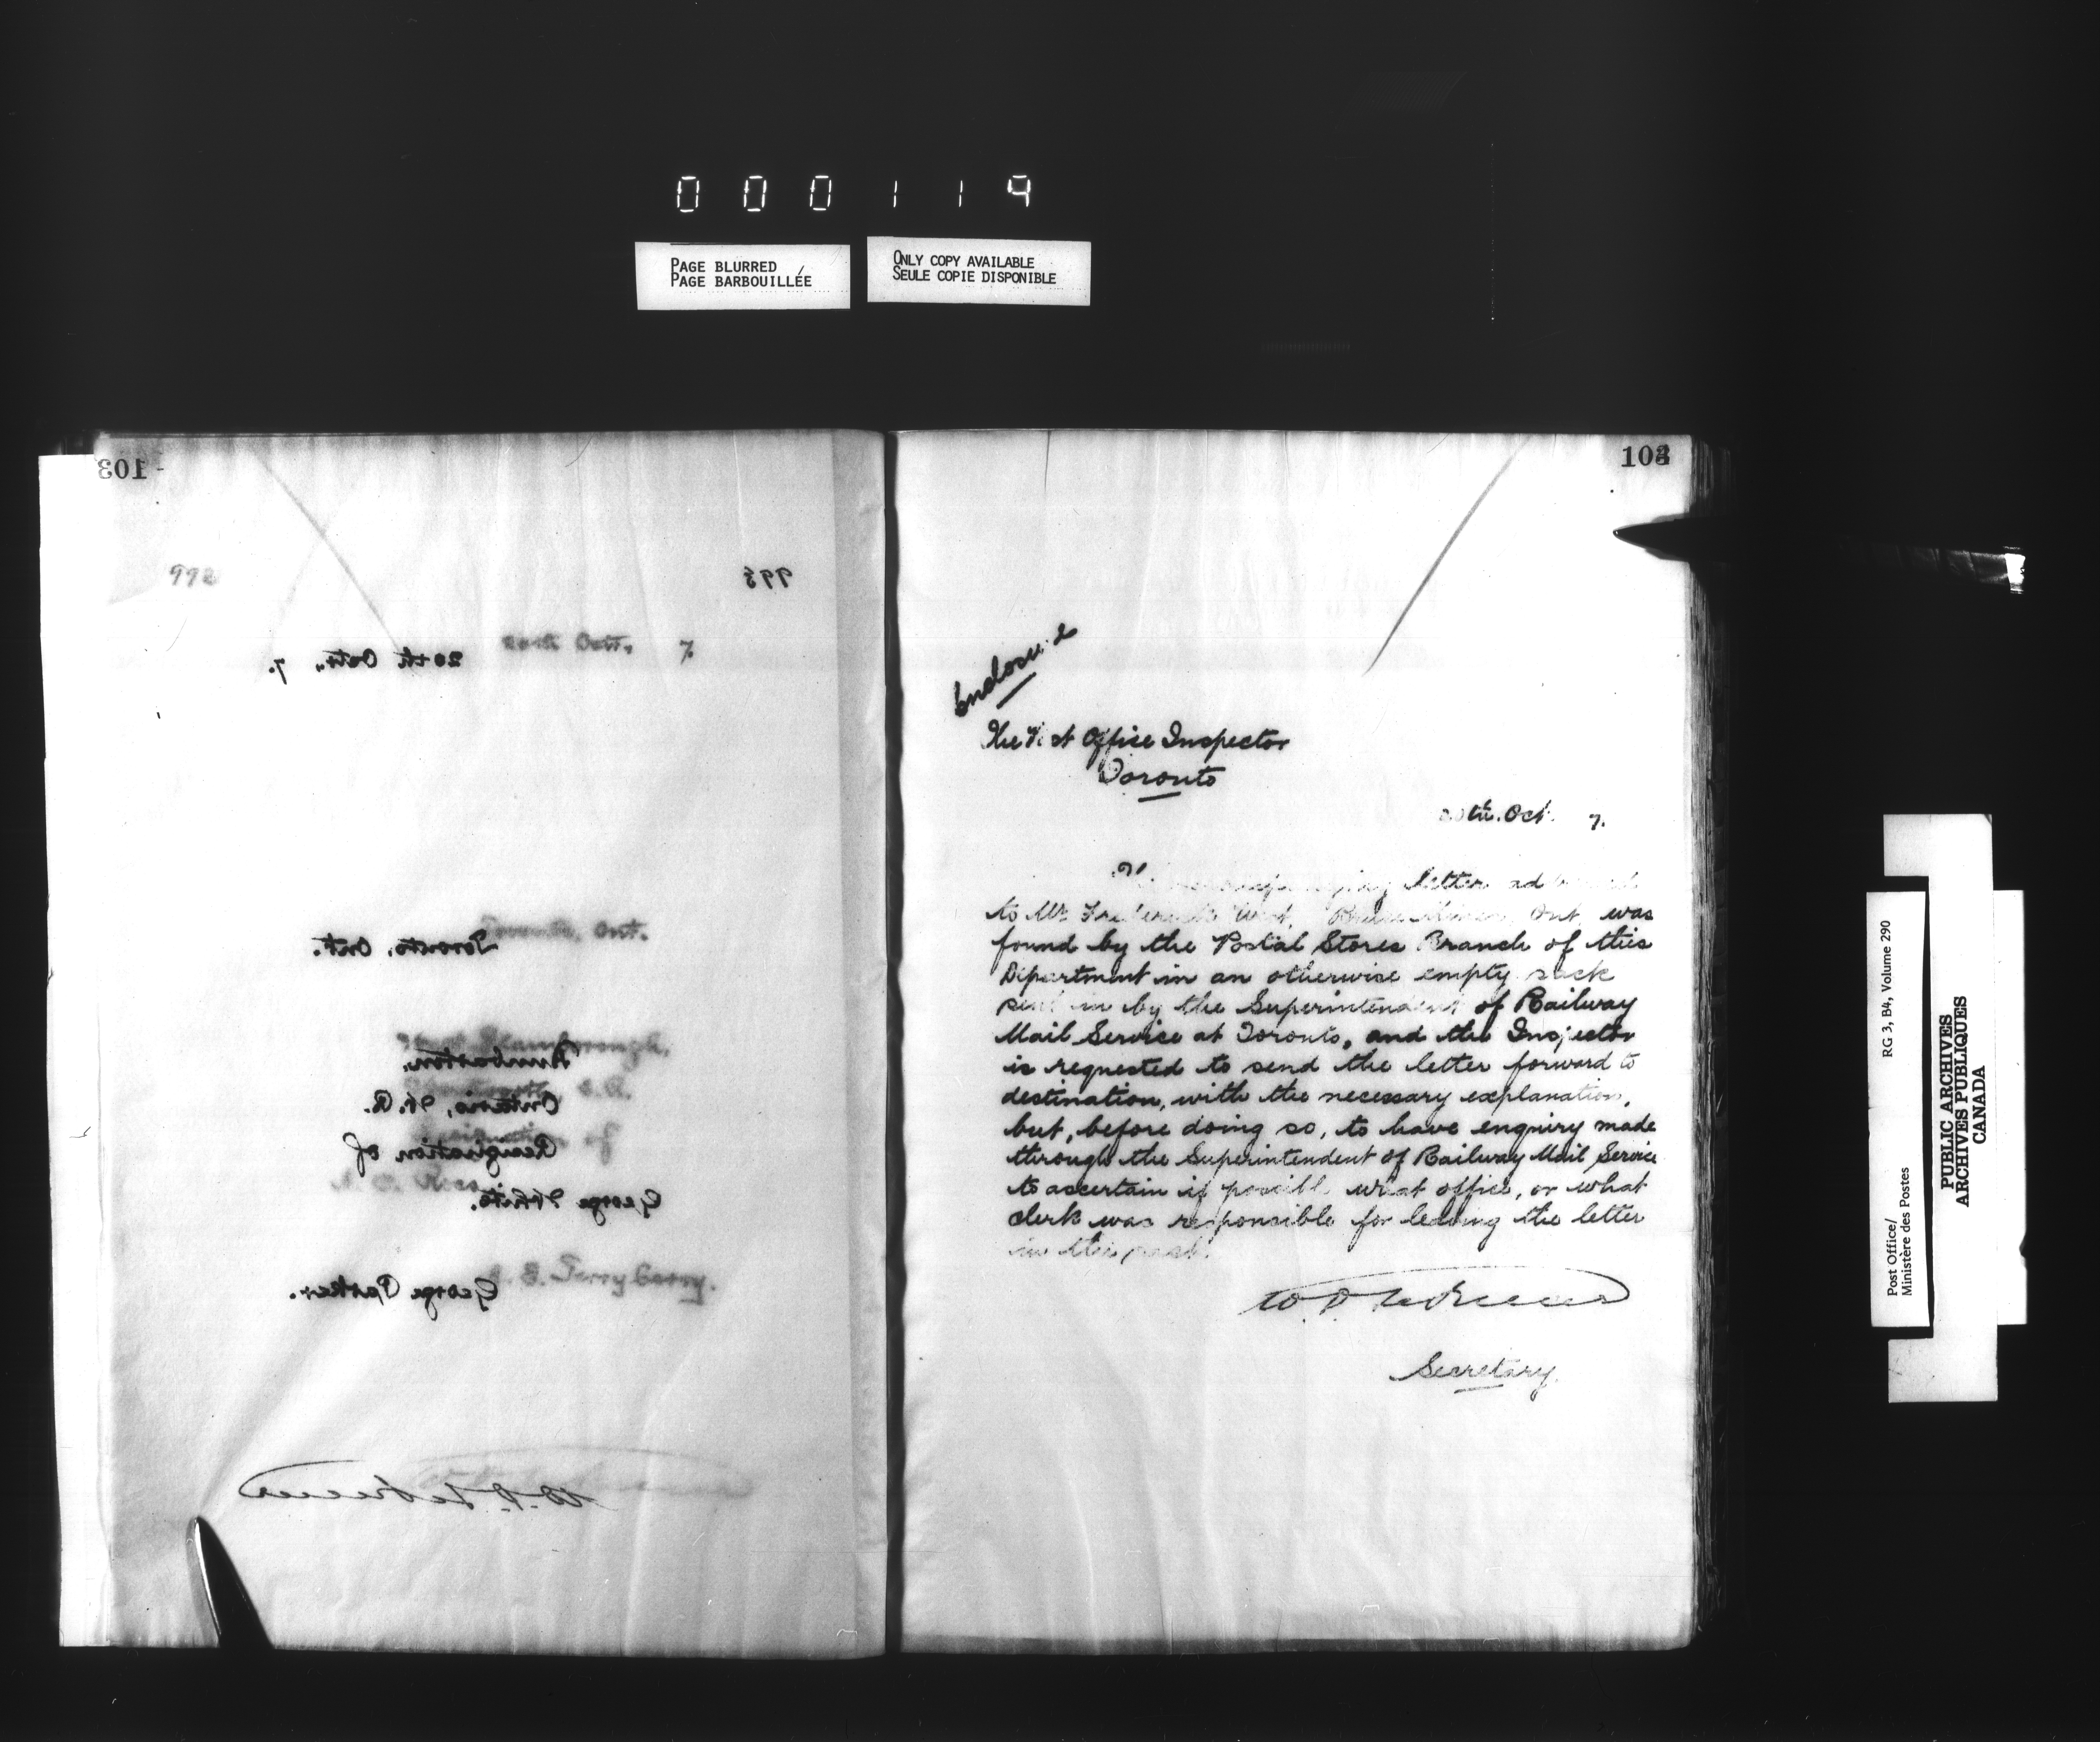 000119
PAGE BLURRED
PAGE BARBOUILLÉE
ONLY COPY AVAILABLE
SEULE COPIE DISPONIBLE
103
992
993
20th Octr., 7.
20th Octr. 7.
Toronto, Ont.
Toronto, Ont.
Dunbarton,
Ontario, W. R.
Resignation of
George White.
George Parker.
Terryberry.
103
Enclosure
The Post Office Inspector
Toronto
20th. Oct. 7.
letter
to Mr. Frederick West, Mines, Ont. was
found by the Postal Stores Branch of this
Department in an otherwise empty sack
sent in by the Superintendent of Railway
Mail Service at Toronto, and the Inspector
is requested to send the letter forward to
destination, with the necessary explanation,
but, before doing so, to have enquiry made
through the Superintendent of Railway Mail Service
to ascertain if possible what office, or what
clerk was responsible for leaving the letter
in this sack.
Secretary.
Post Office/
Ministère des Postes
RG 3, B4, Volume 290
PUBLIC ARCHIVES
ARCHIVES PUBLIQUES
CANADA